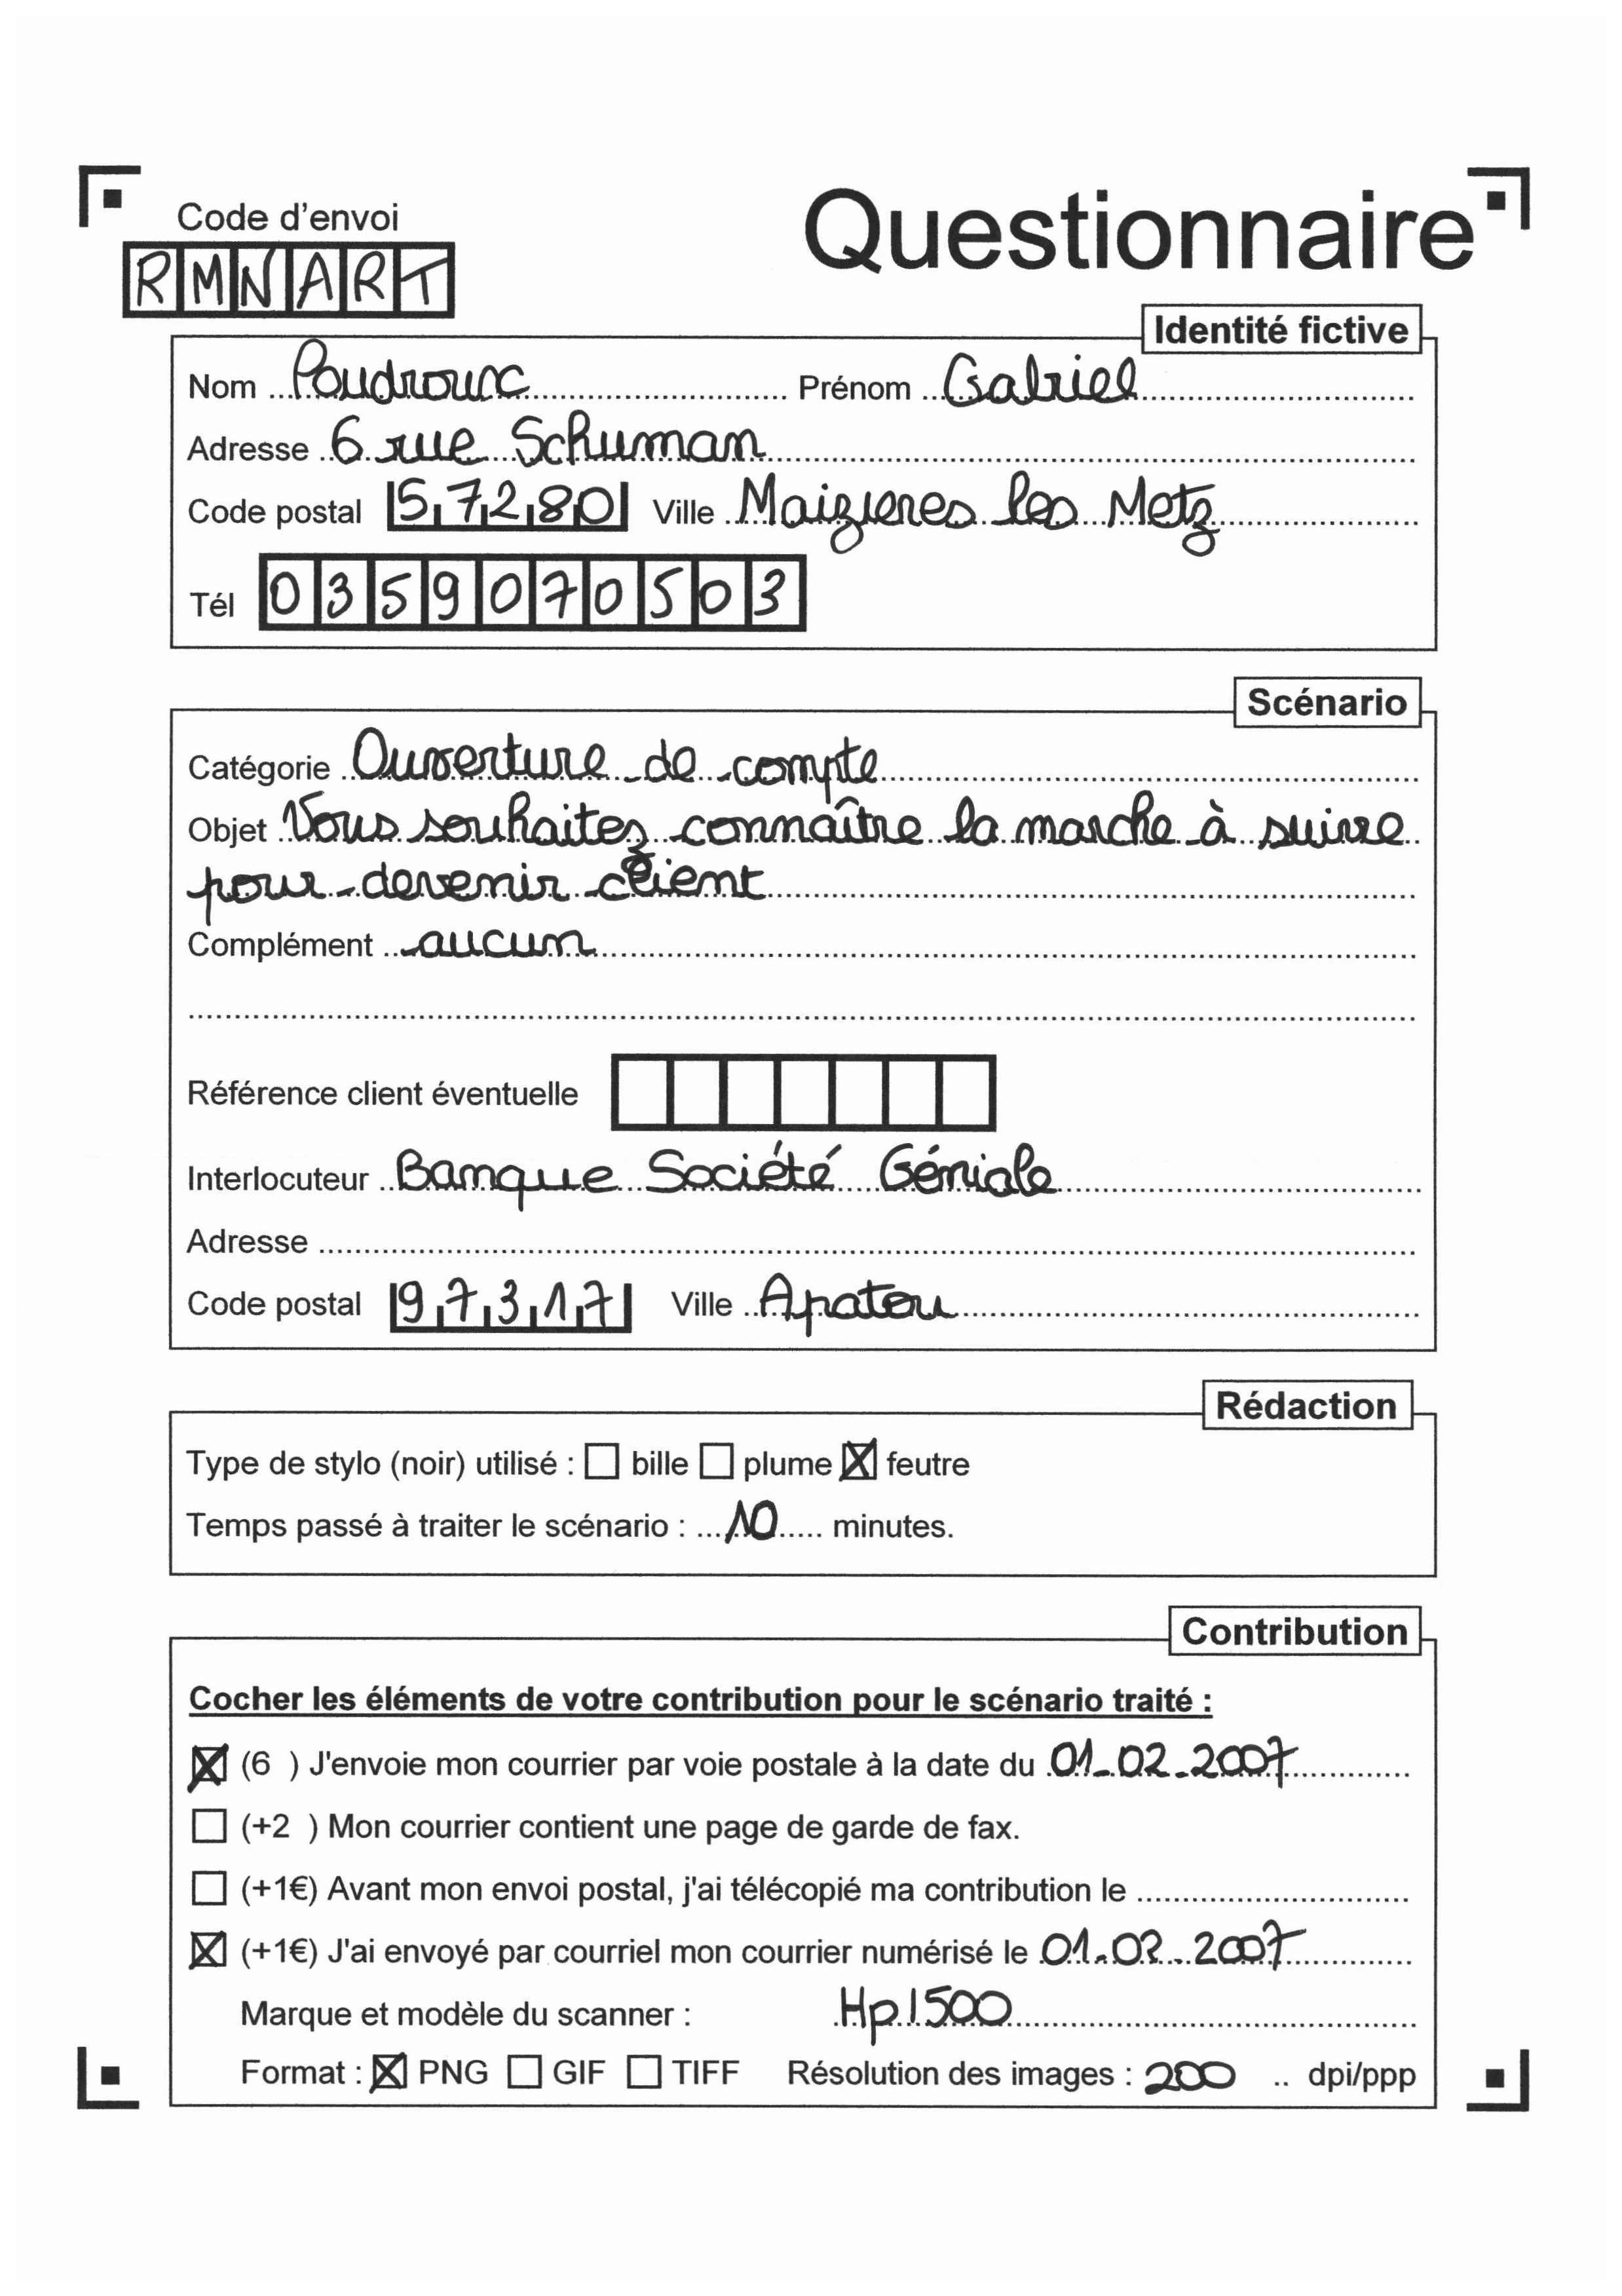 Code d'envoi
Questionnaire
RMNART
Identité fictive
Nom Poudroux Prénom Gabriel
Adresse 6 rue Schuman
Code postal 57280 Ville Maizieres les Metz
Tél 0359070503
Scénario
Catégorie Ouverture de compte
Objet Vous souhaitez connaître la marche à suivre
pour devenir client
Complément aucun
Référence client éventuelle
Interlocuteur Banque Société Géniale
Adresse
Code postal 97317 Ville Apatou
Rédaction
Type de stylo (noir) utilisé : ☐ bille ☐ plume ☒ feutre
Temps passé à traiter le scénario : 10 minutes.
Contribution
Cocher les éléments de votre contribution pour le scénario traité :
☒ (6 ) J'envoie mon courrier par voie postale à la date du 01-02-2007
☐ (+2 ) Mon courrier contient une page de garde de fax.
☐ (+1€) Avant mon envoi postal, j'ai télécopié ma contribution le
☒ (+1€) J'ai envoyé par courriel mon courrier numérisé le 01-02-2007
Marque et modèle du scanner : Hp1500
Format : ☒ PNG ☐ GIF ☐ TIFF Résolution des images : 200 .. dpi/ppp